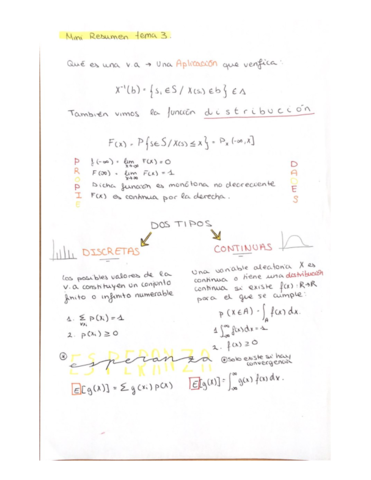 Mini Resumen tema 3.
Qué es una v.a → una Aplicación que verifica:
X⁻¹(b) = { s, ∈ S / X(s) ∈ b } ∈ A
También vimos la función distribución
F(x) = P{s∈S / X(s) ≤ x} = Pₓ (-∞, x]
PROPIEDADES
F(-∞) = lim F(x) = 0
F(∞) = lim F(x) = 1
Dicha función es monótona no decreciente
F(x) es continua por la derecha.
DOS TIPOS
DISCRETAS
Los posibles valores de la
v.a constituyen un conjunto
finito o infinito numerable
1. Σ p(xᵢ) = 1
2. p(xᵢ) ≥ 0
CONTINUAS
Una variable aleatoria X es
continua o tiene una distribución
continua si existe f(x): R→R
para el que se cumple:
P(X∈A) = ∫ f(x) dx.
1. ∫ f(x) dx = 1
2. f(x) ≥ 0
ESPERANZA
esperanza
Solo existe si hay
convergencia
E[g(x)] = Σ g(xᵢ) p(x)
E[g(x)] = ∫ g(x) f(x) dx.